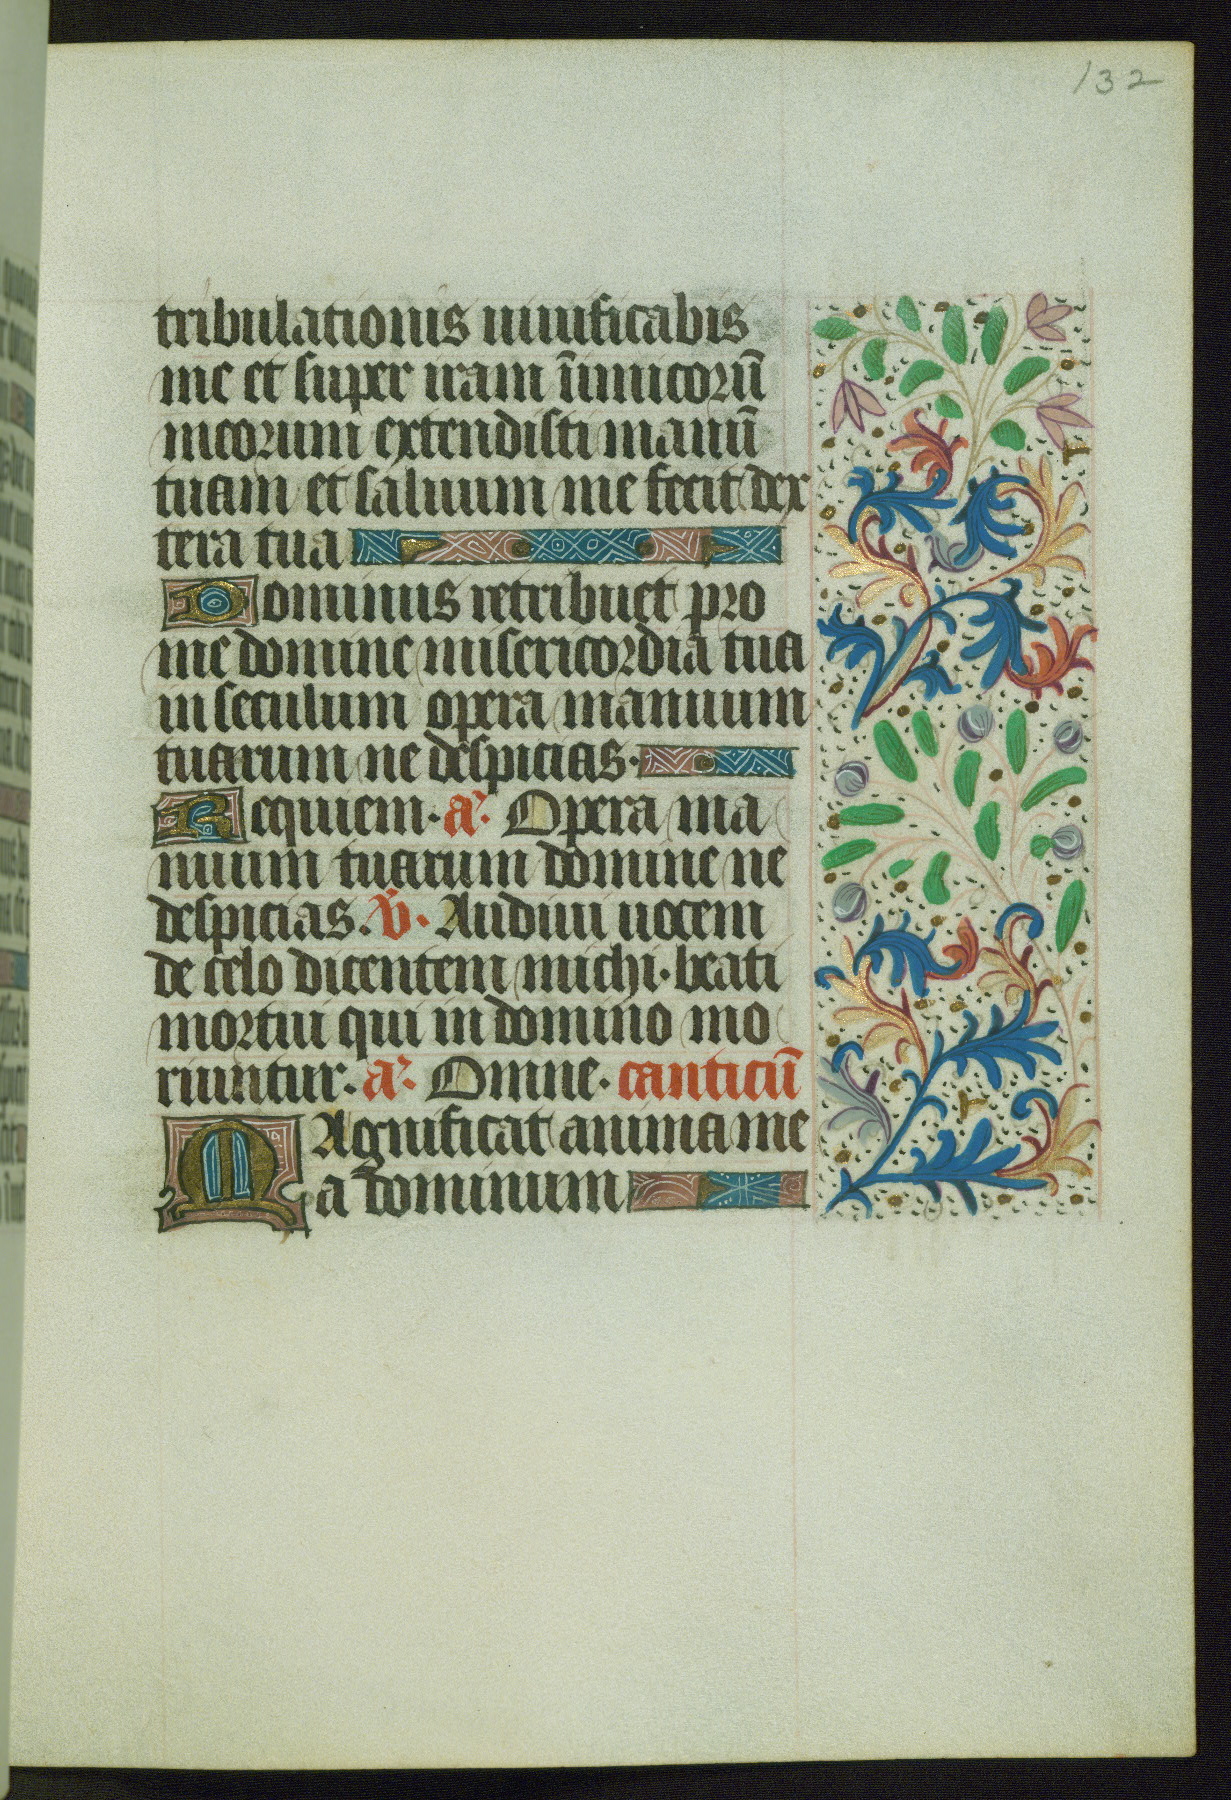 132
tribulationis uiuificabis
me et super iram īimicorū
meorum extendisti manū
tuam et saluum me fecit dex
tera tua
Dominus retribuet pro
me domine misericordia tua
in seculum opera manuum
tuarum ne despicias.
Requiem. a. Opera ma
nuum tuarum domine ne
despicias. v. Audiui uocem
de celo dicentem michi. beati
mortui qui in domino mo
riuntur. a. Omne. canticū
MAgnificat anima me
a dominum